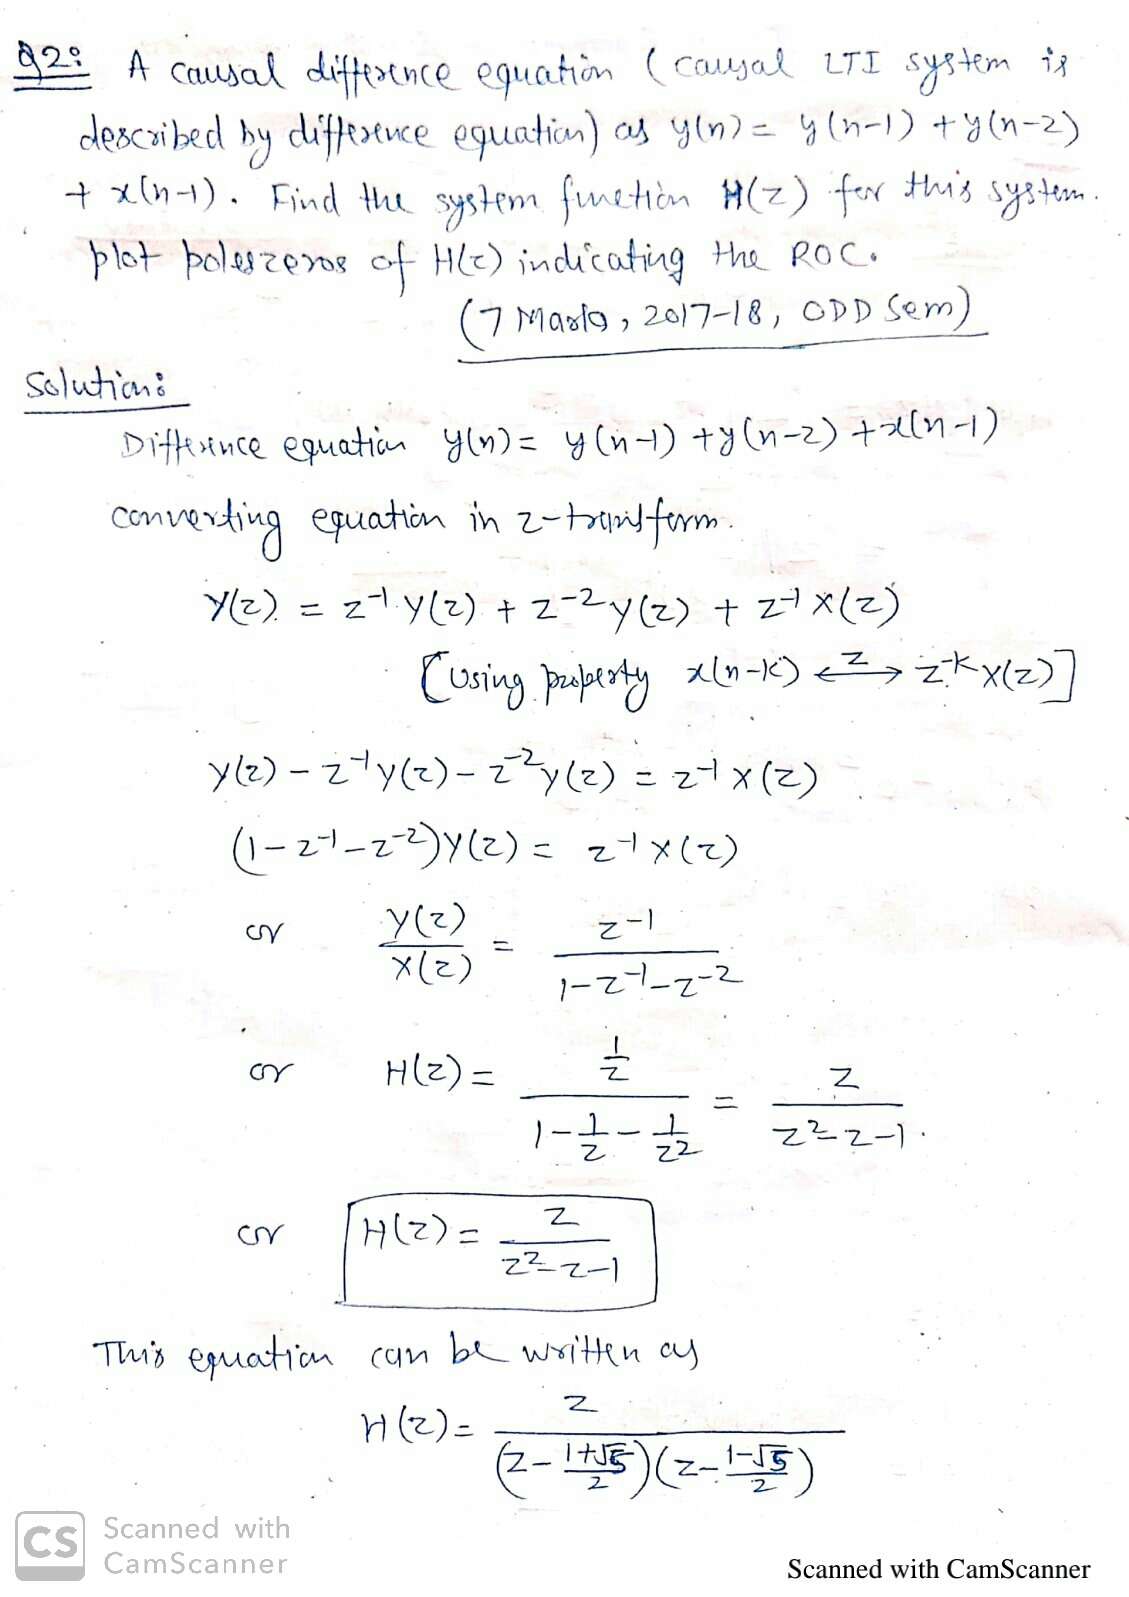 Q2: A causal difference equation (causal LTI system is
described by difference equation) as y(n) = y(n-1) + y(n-2)
+ x(n-1). Find the system function H(z) for this system.
plot poles zeros of H(z) indicating the ROC.
(7 Marks, 2017-18, ODD Sem)
Solution:
Difference equation y(n) = y(n-1) + y(n-2) + x(n-1)
converting equation in z-transform.
Y(z) = z⁻¹ Y(z) + z⁻² Y(z) + z⁻¹ X(z)
[Using property x(n-k) ⟷ᶻ z⁻ᵏ X(z)]
Y(z) - z⁻¹ Y(z) - z⁻² Y(z) = z⁻¹ X(z)
(1 - z⁻¹ - z⁻²) Y(z) = z⁻¹ X(z)
or Y(z)/X(z) = z⁻¹/(1 - z⁻¹ - z⁻²)
or H(z) = (1/z)/(1 - 1/z - 1/z²) = z/(z² - z - 1)
or H(z) = z/(z² - z - 1)
This equation can be written as
H(z) = z/((z - (1+√5)/2)(z - (1-√5)/2))
CS Scanned with
CamScanner
Scanned with CamScanner